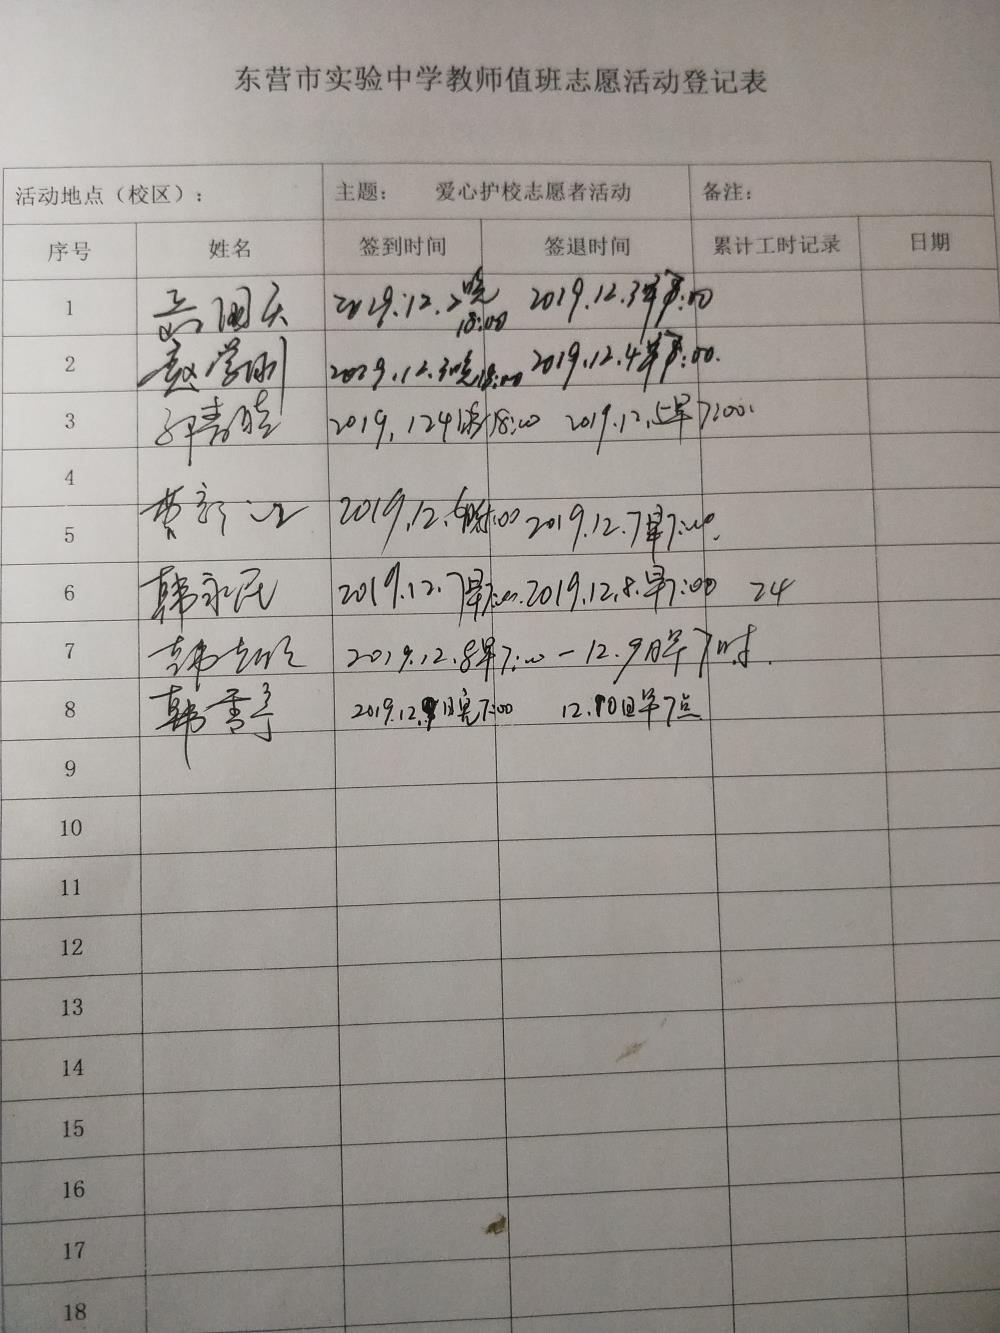 东营市实验中学教师值班志愿活动登记表
活动地点（校区）： 主题： 爱心护校志愿者活动 备注：
序号 姓名 签到时间 签退时间 累计工时记录 日期
1 国庆 2019.12.2晚18:00 2019.12.3早7:00
2 赵学刚 2019.12.3晚18:00 2019.12.4早7:00.
3 2019.12.4晚18:00 2019.12.5早7:00.
4
5 2019.12.6 2019.12.7早7:00.
6 韩永民 2019.12.7早7:00. 2019.12.8.早7:00 24
7 韩 2019.12.8早7:00 — 12.9日早7时.
8 韩 2019.12.9日 7:00 12.10日早7点
9
10
11
12
13
14
15
16
17
18